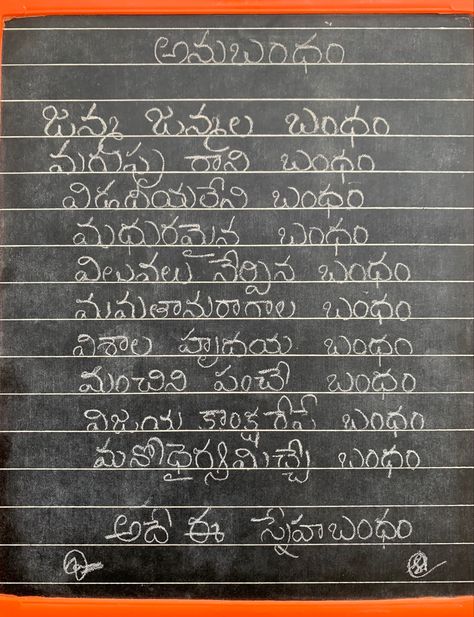 అనుబంధం
జన్మ జన్మల బంధం
మరుపు రాని బంధం
విడదీయలేని బంధం
మధురమైన బంధం
విలువలు నేర్పిన బంధం
మమతానురాగాల బంధం
విశాల హృదయ బంధం
మంచిని పంచే బంధం
విజయ కాంక్ష రేపే బంధం
మనోధైర్యమిచ్చే బంధం
అదే ఈ స్నేహబంధం